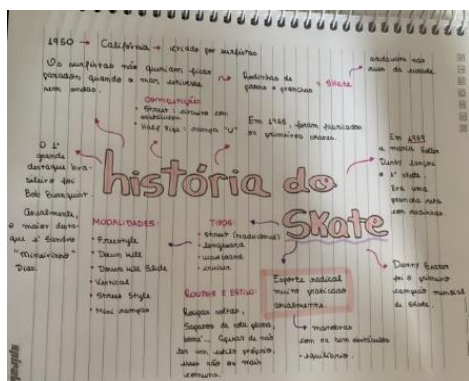 1950 → Califórnia → criado por surfistas
Os surfistas não queriam ficar
parados quando o mar estivesse
sem ondas.
Rodinhas de
patins e pranchas
= Skate
andavam nas
ruas da cidade
Competições
• Street: circuito com
obstáculos
• Half Pipe: rampa "U"
Em 1965, foram fabricados
os primeiros skates.
Em 1959
a marca Roller
Derby lançou
o 1º skate.
Era uma
prancha reta
com rodinhas.
O 1º
grande
destaque bra-
sileiro foi
Bob Burnquist.
história do
Skate
Atualmente,
o maior desta-
que é Sandro
"Mineirinho"
Dias.
MODALIDADES:
• Freestyle
• Down Hill
• Down Hill Slide
• Vertical
• Street Style
• Mini rampas
TIPOS:
• Street (tradicional)
• longboard
• waveboard
• cruiser
ROUPAS E ESTILO:
Roupas soltas,
Sapatos de sola plana,
boné...
ter um estilo próprio,
mais
comuns.
Esporte radical
muito praticado
atualmente.
manobras
com ou sem obstáculos
• equilíbrio.
Danny
foi o primeiro
campeão mundial
de skate.